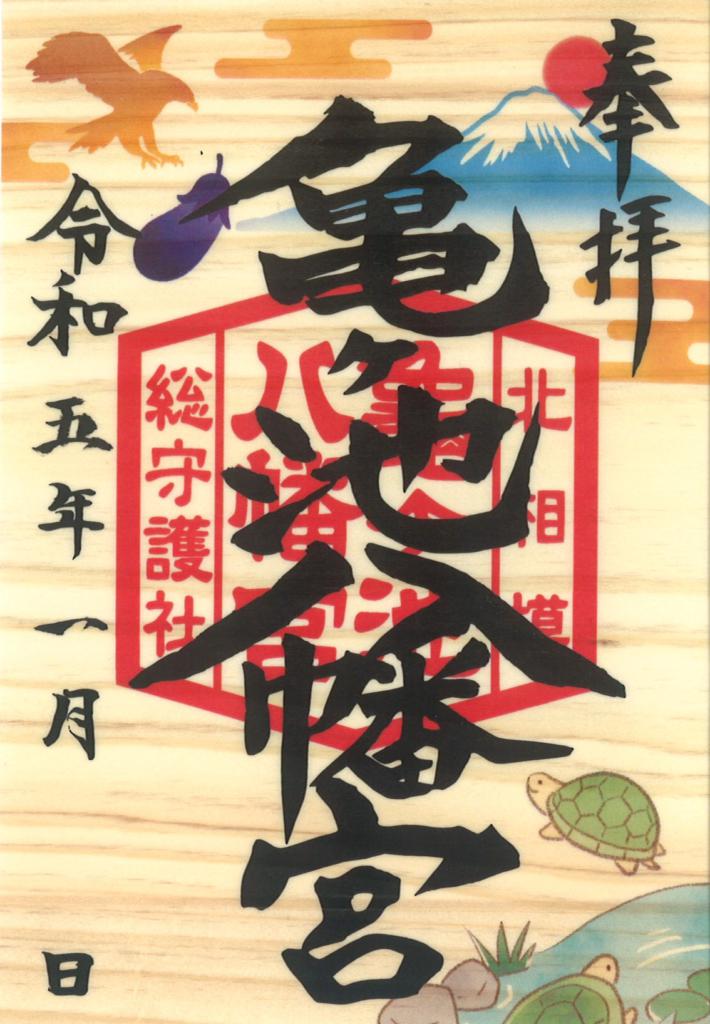 奉拝
亀ヶ池八幡宮
北相模
亀ヶ池
八幡宮
総守護社
令和五年一月 日